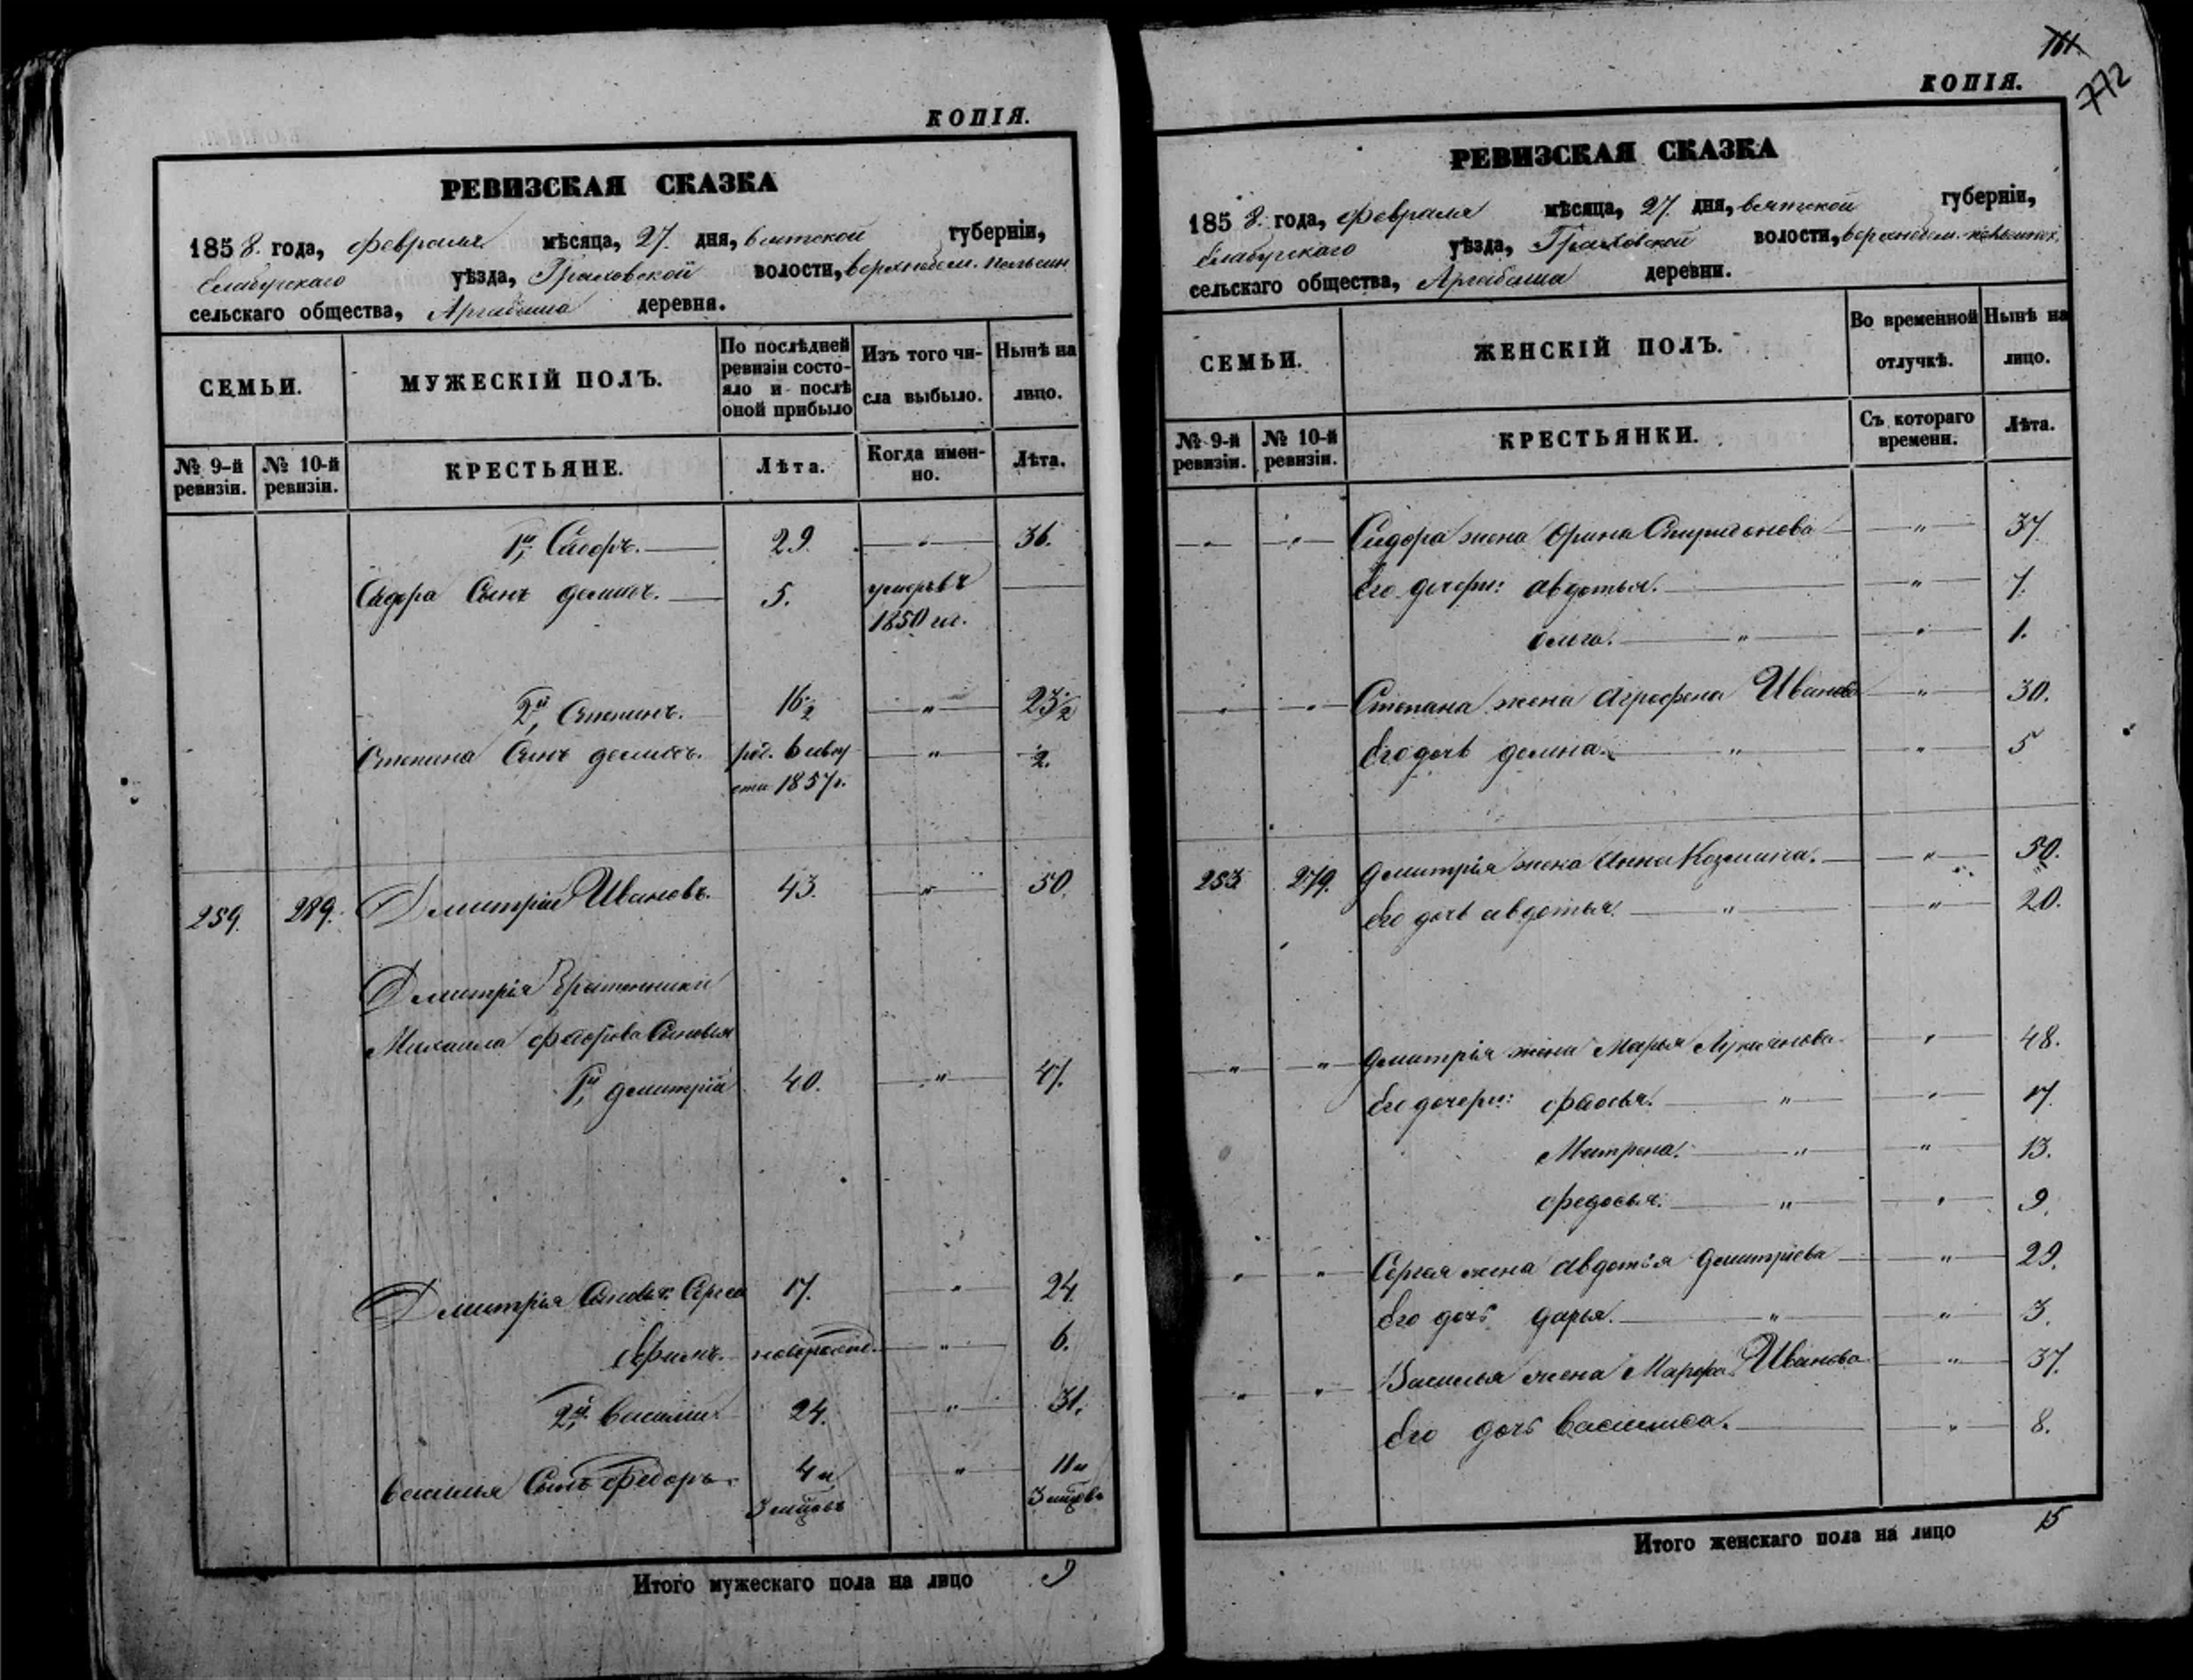 КОПІЯ.
РЕВИЗСКАЯ СКАЗКА
1858. года, февраля мѣсяца, 27. дня, вятской губерніи,
Елабугскаго уѣзда, Граховской волости,
сельскаго общества, Аргабаша деревня.
СЕМЬИ.
МУЖЕСКІЙ ПОЛЪ.
По послѣдней ревизіи состояло и послѣ оной прибыло
Изъ того числа выбыло.
Нынѣ на лицо.
№ 9-й ревизіи.
№ 10-й ревизіи.
КРЕСТЬЯНЕ.
Лѣта.
Когда именно.
Лѣта.
1й Сидоръ. 29. " 36.
Сидора Сынъ 5. умеръ въ
1850 го.
2й Степанъ. 16½ " 23½
Степана Сынъ " 2.
1857г.
259. 289. Дмитрій Ивановъ. 43. " 50.
Дмитрія
Михаила Федорова Сыновья
1й Дмитрій 40. " 47.
Дмитрія Сыновья: Сергей 17. " 24.
Ефимъ. новорожд. " 6.
2й Василий 24. " 31.
Василья Сынъ Федоръ. 4 и " 11 и
3 мцовъ 3 мцовъ
Итого мужескаго пола на лицо 9
КОПІЯ.
772
РЕВИЗСКАЯ СКАЗКА
1858. года, февраля мѣсяца, 27. дня, вятской губерніи,
Елабугскаго уѣзда, Граховской волости,
сельскаго общества, Аргабаша деревни.
СЕМЬИ.
ЖЕНСКІЙ ПОЛЪ.
Во временной отлучкѣ.
Нынѣ на лицо.
№ 9-й ревизіи.
№ 10-й ревизіи.
КРЕСТЬЯНКИ.
Съ котораго времени.
Лѣта.
" " Сидора жена Орина Спиридонова " 37
Его дочери: авдотья. " 7.
Ольга. " " 1.
" " Степана жена Аграфена Иванова " 30.
Его дочь " " 5
253 279. Дмитрія жена Анна Козмина. " 50.
Его дочь авдотья. " " 20.
" " Дмитрія жена Марья Лукианова " 48.
Его дочери: " " 17.
Матрена. " " 13.
Федосья. " " 9.
" " Сергея жена Авдотья Дмитріева " 29.
Его дочь дарья. " " 3.
" " Василья жена Марфа Иванова " 37.
Его дочь Василиса. " 8.
Итого женскаго пола на лицо 15